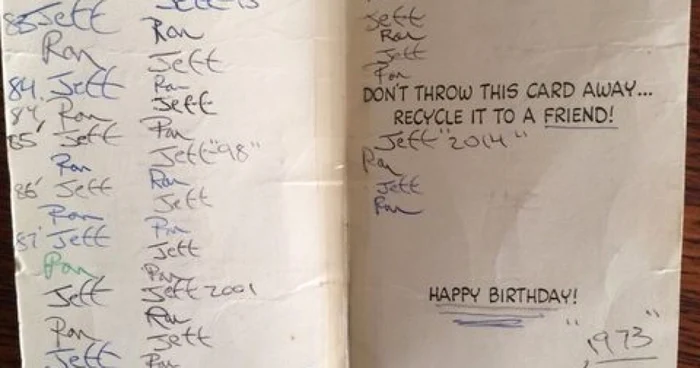 83 Jeff
Ron
84 Jeff
84' Ron
85' Jeff
Ron
86' Jeff
Ron
87' Jeff
Ron
Jeff
Ron
Jeff
Jeff
Ron
Jeff
Ron
Jeff
Ron
Jeff "98"
Ron
Jeff
Ron
Jeff
Ron
Jeff 2001
Ron
Jeff
Ron
Jeff
Ron
Jeff
Ron
DON'T THROW THIS CARD AWAY...
RECYCLE IT TO A FRIEND!
Jeff "2014"
Ron
Jeff
Ron
HAPPY BIRTHDAY!
"1973"